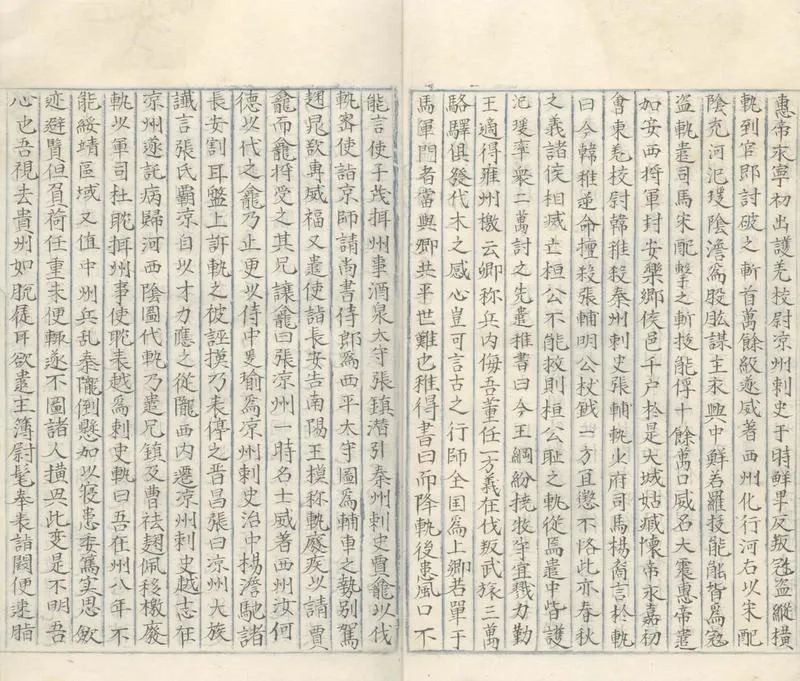 惠帝永寧初出護羌校尉凉州刺史于時鮮卑反叛㓂盗縱横
軌到官即討破之斬首萬餘級遂威著西州化行河右以宋配
陰充河汜瑗陰澹爲股肱謀主永興中鮮若羅拔能能皆爲寇
盗軌遣司馬宋配擊之斬拔能俘十餘萬口威名大震惠帝遣
加安西將軍封安樂鄉侯邑千户於是大城姑臧懷帝永嘉初
會東羌校尉韓稚殺秦州刺史張輔軌少府司馬楊裔言於軌
曰今韓稚逆命擅殺張輔明公杖鉞一方宜懲不恪此亦春秋
之義諸侯相威亡桓公不能救則桓公耻之軌從焉遣中督護
汜瑗率衆二萬討之先遣稚書曰今王綱紛撓牧守宜戮力勤
王適得雍州檄云卿称兵内侮吾董任一方義在伐叛武旅三萬
駱驛俱發伐木之感心豈可言古之行師全国爲上卿若單于
馬軍門者當與卿共平世難也稚得書曰而降軌後患風口不
能言使子茂攝州事酒泉太守張鎮潜引秦州刺史賈龕以代
軌密使詣京師請尚書侍郎爲西平太守圖爲輔車之勢别駕
麹晁欲專威福又遣使詣長安告南陽王模称軌廢疾以請賈
龕而龕將受之其兄讓龕曰張凉州一時名士威著西州汝何
德以代之龕乃止更以侍中爰瑜爲凉州刺史治中楊澹馳詣
長安割耳盤上訴軌之被誣模乃表停之晋昌張曰凉州大族
讖言張氏霸凉自以才力應之從隴西内遷凉州刺史越志在
凉州遂託病歸河西陰圖代軌乃遣兄鎮及曹祛麹佩移檄廢
軌以軍司杜耽攝州事使耽表越爲刺史軌曰吾在州八年不
能綏靖區域又值中州兵乱秦隴倒懸加以寝患委篤實思歛
迹避賢但負荷任重未便輒遂不圖諸人横興此變是不明吾
心也吾視去貴州如脱屣耳欲遣主簿尉髦奉表詣闕便速脂